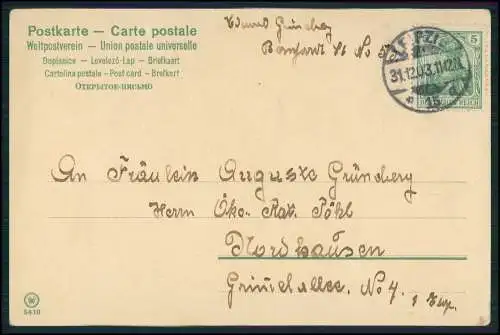 Postkarte — Carte postale
Weltpostverein — Union postale universelle
Dopisnice — Levelező-Lap — Briefkaart
Cartolina postale - Post card - Brefkort
ОТКРЫТОЕ-ПИСЬМО
Grünberg
St No 5
LEIPZIG
31.12.03.11-12
15
5
DEUTSCHES REICH
An Fräulein Auguste Grünberg
Herrn Öko. Rat. Pöhl
Nordhausen
No 4.
5410